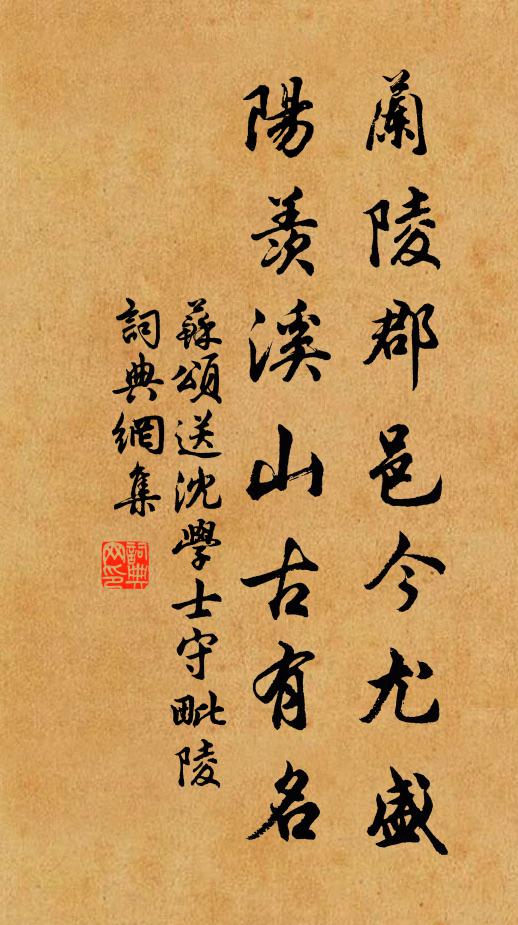 蘭陵郡邑今尤盛
陽羨溪山古有名
蘇頌送沈學士守毗陵
詞典網集
詞典網印